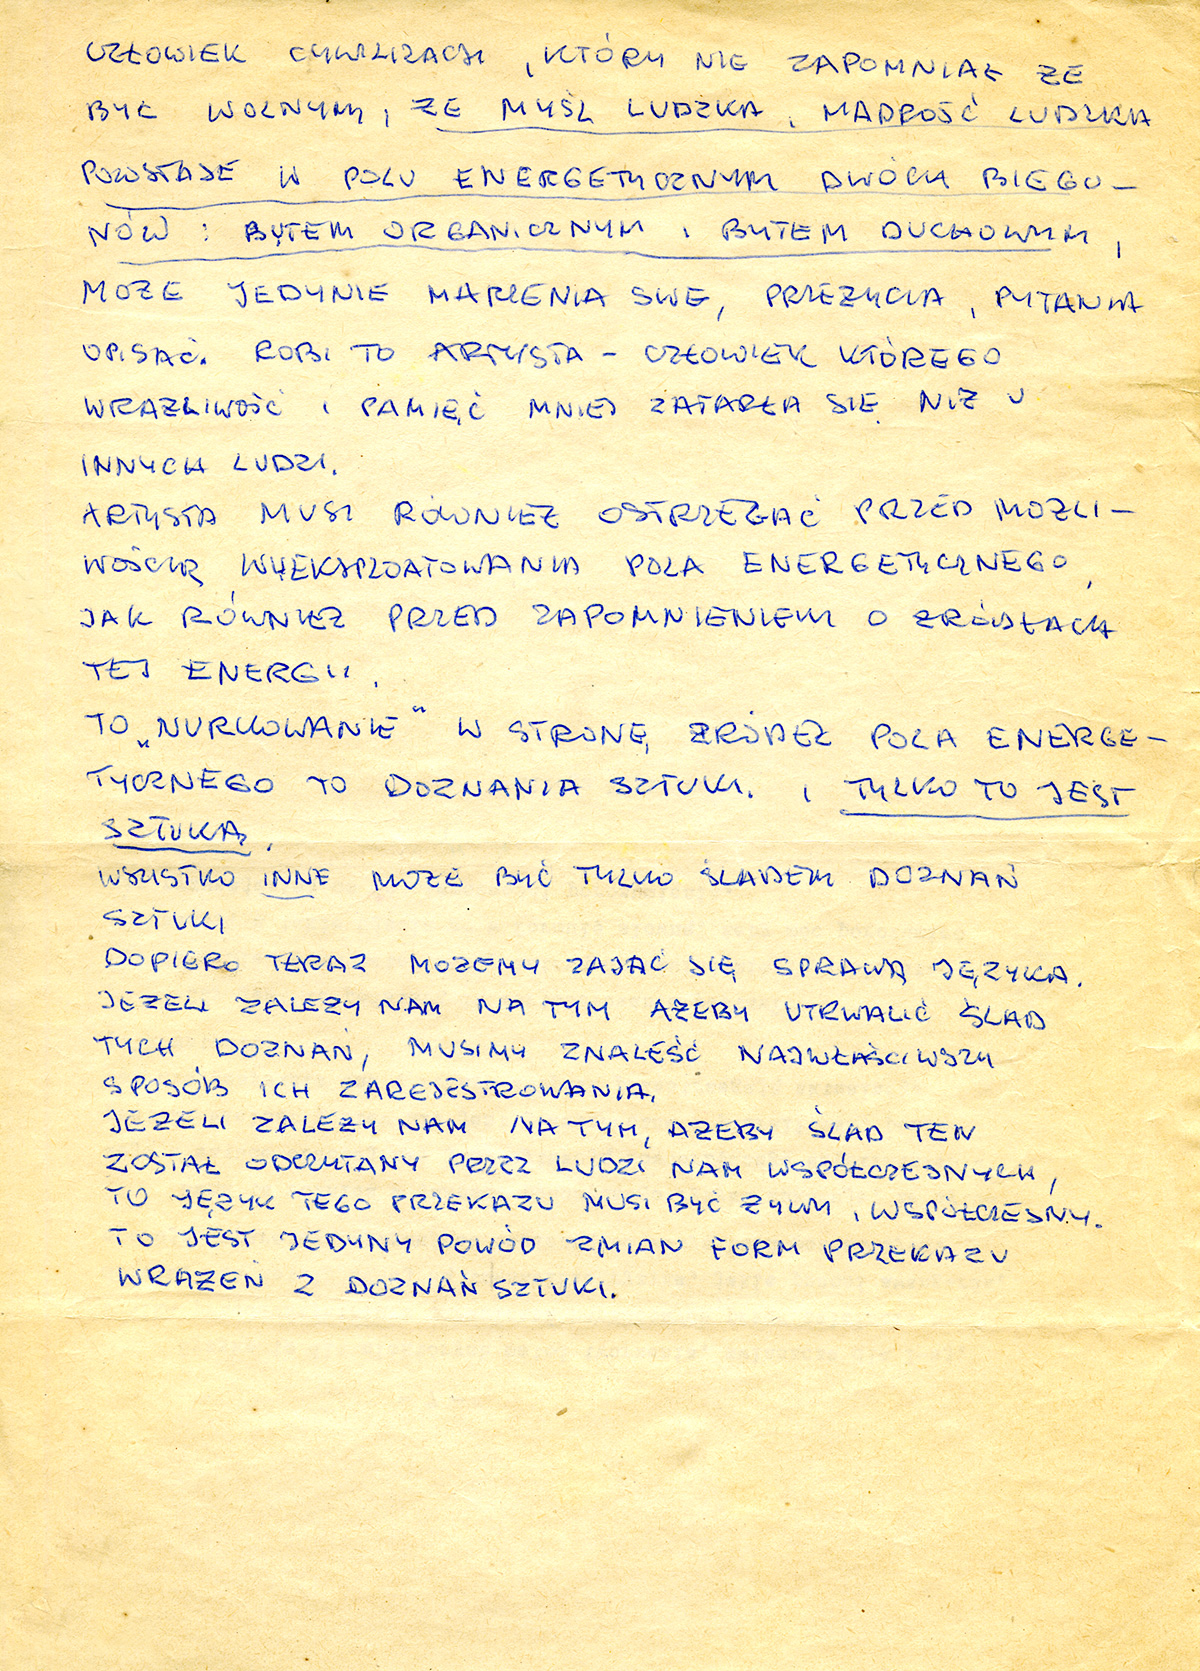 CZŁOWIEK CYWILIZACJI, KTÓRY NIE ZAPOMNIAŁ ŻE
BYŁ WOLNYM, ŻE MYŚL LUDZKA, MĄDROŚĆ LUDZKA
POWSTAJE W POLU ENERGETYCZNYM DWÓCH BIEGU-
NÓW : BYTEM ORGANICZNYM I BYTEM DUCHOWYM,
MOŻE JEDYNIE MARZENIA SWE, PRZEŻYCIA, PYTANIA
OPISAĆ. ROBI TO ARTYSTA - CZŁOWIEK KTÓREGO
WRAŻLIWOŚĆ I PAMIĘĆ MNIEJ ZATARŁA SIĘ NIŻ U
INNYCH LUDZI.
ARTYSTA MUSI RÓWNIEŻ OSTRZEGAĆ PRZED MOŻLI-
WOŚCIĄ WYEKSPLOATOWANIA POLA ENERGETYCZNEGO,
JAK RÓWNIEŻ PRZED ZAPOMNIENIEM O ŹRÓDŁACH
TEJ ENERGII.
TO „NURKOWANIE" W STRONĘ ŹRÓDEŁ POLA ENERGE-
TYCZNEGO TO DOZNANIA SZTUKI. I TYLKO TO JEST
SZTUKĄ.
WSZYSTKO INNE MOŻE BYĆ TYLKO ŚLADEM DOZNAŃ
SZTUKI
DOPIERO TERAZ MOŻEMY ZAJĄĆ SIĘ SPRAWĄ JĘZYKA.
JEŻELI ZALEŻY NAM NA TYM AŻEBY UTRWALIĆ ŚLAD
TYCH DOZNAŃ, MUSIMY ZNALEŚĆ NAJWŁAŚCIWSZY
SPOSÓB ICH ZAREJESTROWANIA.
JEŻELI ZALEŻY NAM NA TYM, AŻEBY ŚLAD TEN
ZOSTAŁ ODCZYTANY PRZEZ LUDZI NAM WSPÓŁCZESNYCH,
TO JĘZYK TEGO PRZEKAZU MUSI BYĆ ŻYWY, WSPÓŁCZESNY.
TO JEST JEDYNY POWÓD ZMIAN FORM PRZEKAZU
WRAŻEŃ Z DOZNAŃ SZTUKI.